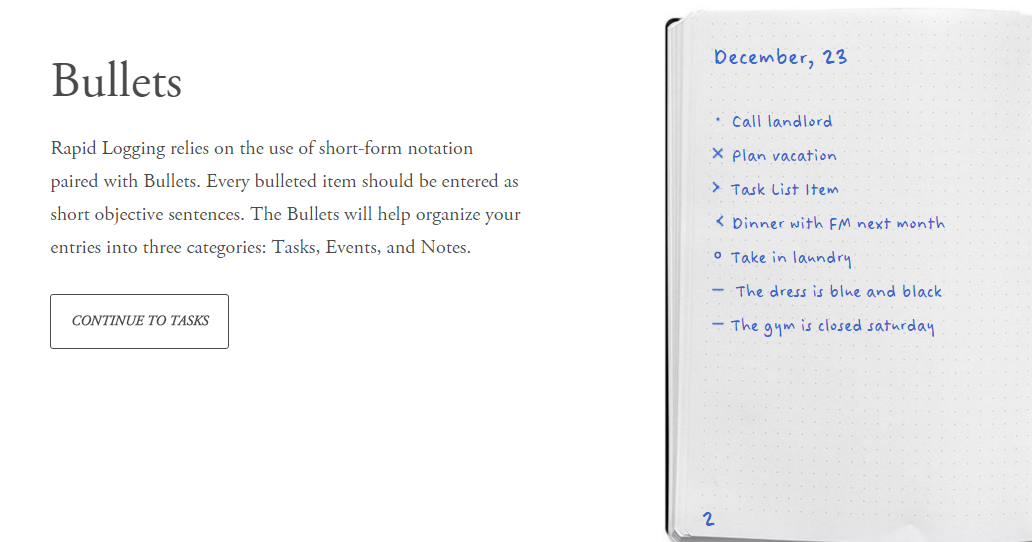 Bullets
Rapid Logging relies on the use of short-form notation
paired with Bullets. Every bulleted item should be entered as
short objective sentences. The Bullets will help organize your
entries into three categories: Tasks, Events, and Notes.
CONTINUE TO TASKS
December, 23
· Call landlord
× Plan vacation
> Task List Item
< Dinner with FM next month
o Take in laundry
– The dress is blue and black
– The gym is closed saturday
2